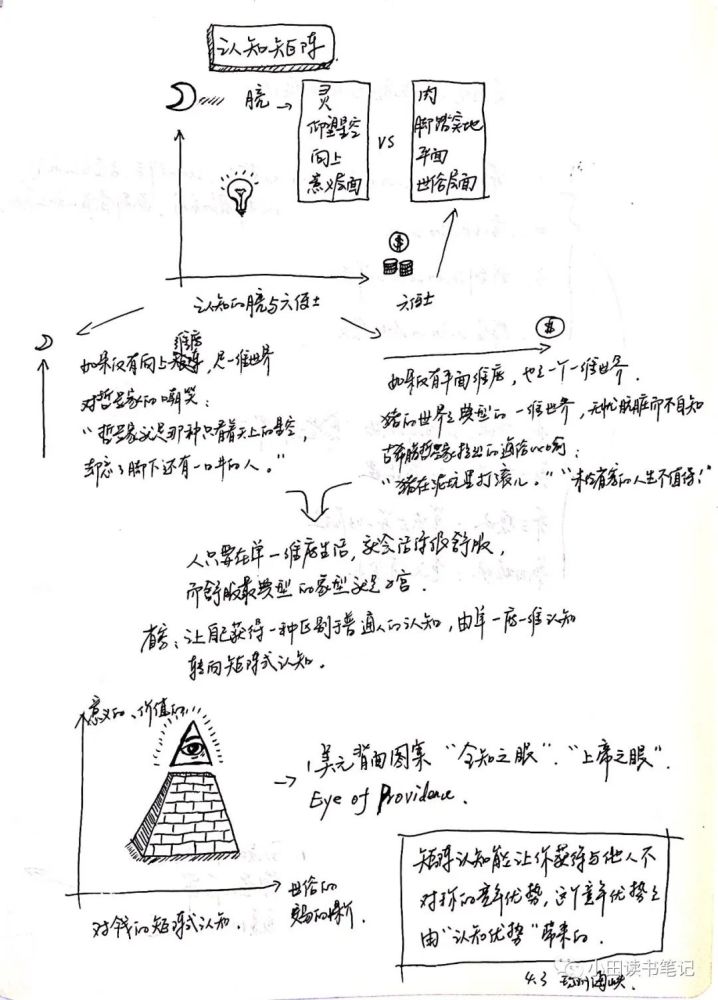 认知矩阵
月亮 → 灵
仰望星空
向上
意义层面
VS
肉
脚踏实地
平面
世俗层面
$
认知的月亮与六便士
六便士
$
维度
如果仅有向上，是一维世界
对哲学家的嘲笑：
“哲学家就是那种只看着天上的星空，
却忘了脚下还有一口井的人。”
如果仅有平面维度，也是一个一维世界.
猪的世界是典型的一维世界，无忧肮脏而不自知
古希腊哲学家提出的
“猪在泥坑里打滚儿。” “未经省察的人生不值得！”
人只要在单一维度生活，就会活得很舒服，
而舒服最典型的家型就是
省察：让自己获得一种区别于普通人的认知，由单一一维认知
转向矩阵式认知.
意义的、价值的
→ 美元背面图案 “全知之眼”、“上帝之眼”.
Eye of Providence.
世俗的
对钱的矩阵式认知.
矩阵认知能让你获得与他人不
对称的竞争优势，这个竞争优势是
由“认知优势”带来的.
小田读书笔记
4.3 琼州海峡.